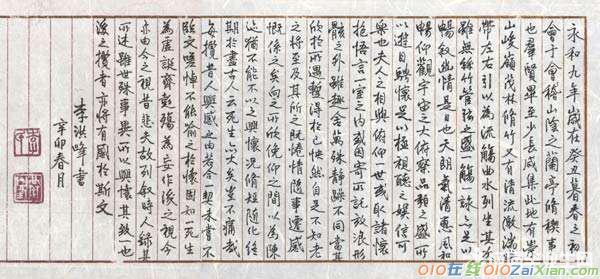 永和九年歲在癸丑暮春之初
會于會稽山陰之蘭亭脩稧事
也群賢畢至少長咸集此地有崇
山峻嶺茂林脩竹又有清流激湍
帶左右引以為流觴曲水列坐其次
雖無絲竹管弦之盛一觴一詠亦足以
暢敘幽情是日也天朗氣清惠風和
暢仰觀宇宙之大俯察品類之盛所
以遊目騁懷足以極視聽之娛信可
樂也夫人之相與俯仰一世或取諸懷
抱悟言一室之內或因寄所託放浪形
骸之外雖趣舍萬殊靜躁不同當其
欣於所遇暫得於己快然自足不知老
之將至及其所之既惓情隨事遷感
慨係之矣向之所欣俛仰之間以為陳
迹猶不能不以之興懷況脩短隨化終
期於盡古人云死生亦大矣豈不痛哉
每攬昔人興感之由若合一契未嘗不
臨文嗟悼不能喻之於懷固知一死生
為虛誕齊彭殤為妄作後之視今
亦由今之視昔悲夫故列敘時人錄其
所述雖世殊事異所以興懷其致一也
後之攬者亦將有感於斯文
李洪峰書
辛卯春月
OloZaiXian.com